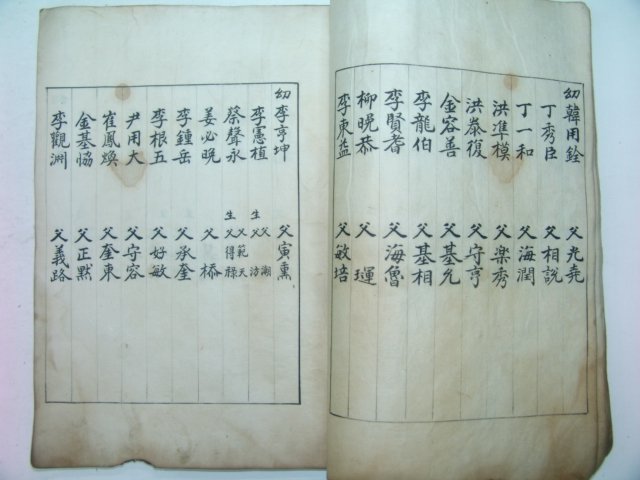 幼 韓用銓 父 光堯
丁秀臣 父 相說
丁一和 父 海潤
洪準模 父 樂秀
洪泰復 父 守亨
金容善 父 基允
李龍伯 父 基相
李賢耆 父 海魯
柳晩恭 父 璭
李東益 父 敏培
幼 李亨坤 父 寅熏
李憲植 父 湖 生父 涝
蔡聲永 父 範天 生父 得祿
姜必晩 父 㮇
李鍾岳 父 承奎
李根五 父 好敏
尹用大 父 守容
崔鳳煥 父 奎東
金基恊 父 正默
李觀洲 父 義路